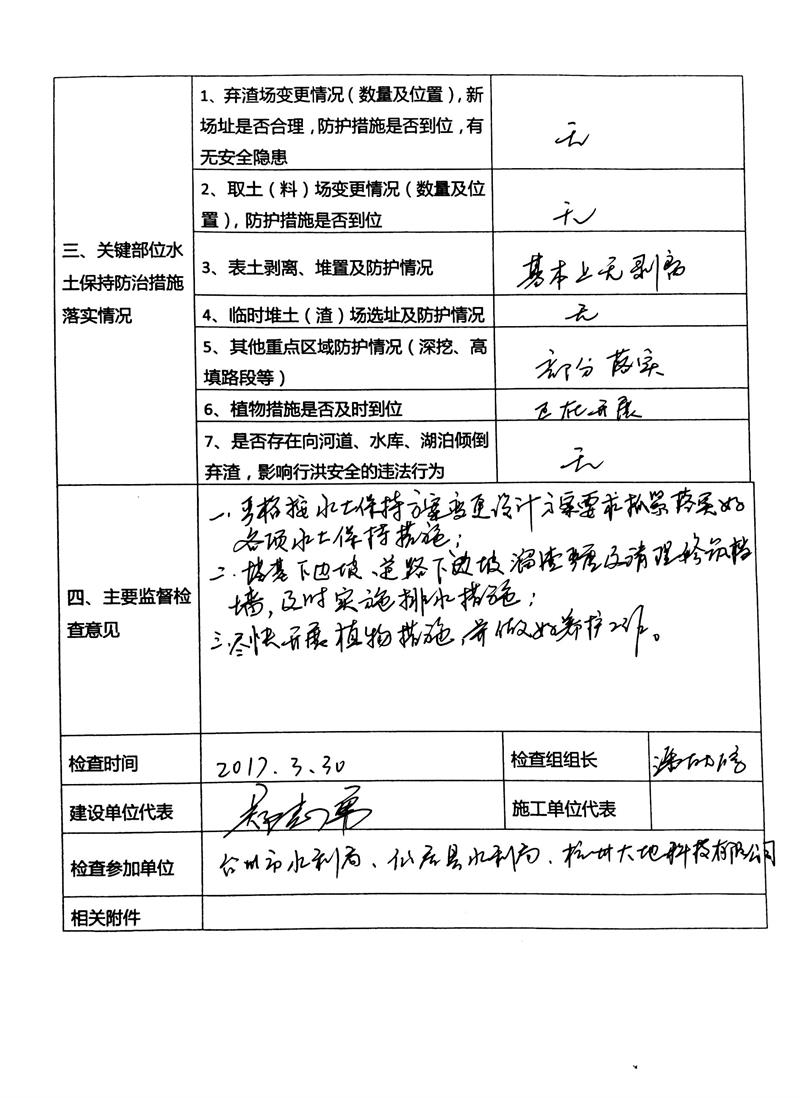 1、弃渣场变更情况（数量及位置），新
场址是否合理，防护措施是否到位，有
无安全隐患
无
2、取土（料）场变更情况（数量及位
置），防护措施是否到位
无
三、关键部位水
土保持防治措施
落实情况
3、表土剥离、堆置及防护情况
基本上无剥离
4、临时堆土（渣）场选址及防护情况
无
5、其他重点区域防护情况（深挖、高
填路段等）
部分落实
6、植物措施是否及时到位
正在开展
7、是否存在向河道、水库、湖泊倾倒
弃渣，影响行洪安全的违法行为
无
四、主要监督检
查意见
一、严格按水土保持方案变更设计方案要求抓紧落实好
各项水土保持措施；
二、塔基下边坡、道路下边坡溜渣要及清理修筑挡
墙，及时实施排水措施；
三、尽快开展植物措施，并做好养护工作。
检查时间
2017.3.30
检查组组长
建设单位代表
施工单位代表
检查参加单位
台州市水利局、仙居县水利局、杭州大地科技有限公司
相关附件